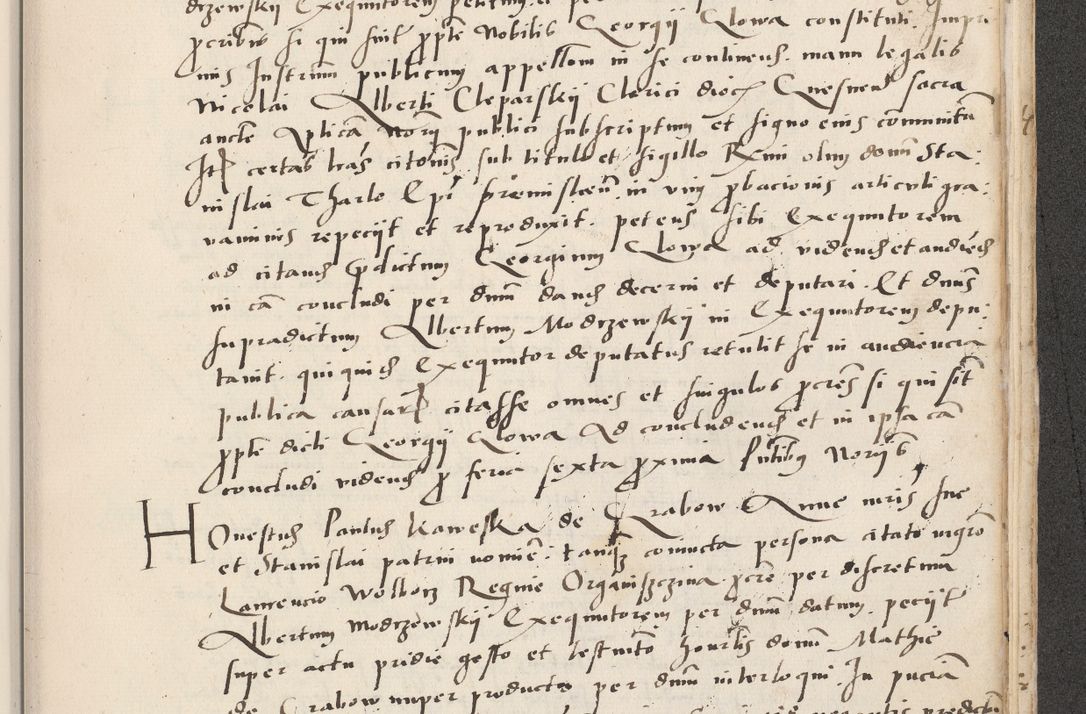 drzewskij Exequutorem
pcribus si qui sint ppte Nobilis Georgij Glowa constituti Impri
mis Instrum publicum appellom in se continens manu legalis
Nicolai Alberti Cleparskij Clerici dioc Gnesnen sacra
aucte Aplica Norij publici subscriptum et signo eius communitu
Itē certas lras citonis sub titulo et sigillo Rmi olim domi Sta:
nislai Tharlo Epi premislien in vim pbacionis articuli gra:
vaminis repeciit et reproduxit petens sibi Exequutorem
ad citand pdictum Georgium Glowa ad vidend et audiēd
in ca concludi per dnm dand decerni et deputari Et dnus
supradictum Albertum Modrzewskij in Exequutorem depu:
tavit qui quid Exequutor deputatus retulit se in audiencia
publica causarū citasse omnes et singulos pcres si qui sīt
ppte dicti Georgij Glowa Ad concludend et in ipsa ca
concludi videnđ p feria sexta pxima Pntibus Norijs
Honestus Paulus kaweska de Grabow Anne iuris sue
et Stanislai patrui nomie tanq coniucta persona citato nigro
Laurencio Wolborz Regine Organiszczina pcre per discretum
Albertum Modrzewskij Exequutorem per dnm datum peciit
super actu pridie gesto et testmto honestis domi Mathie
de Grabow nuper producto per dnm interloqui In pncia